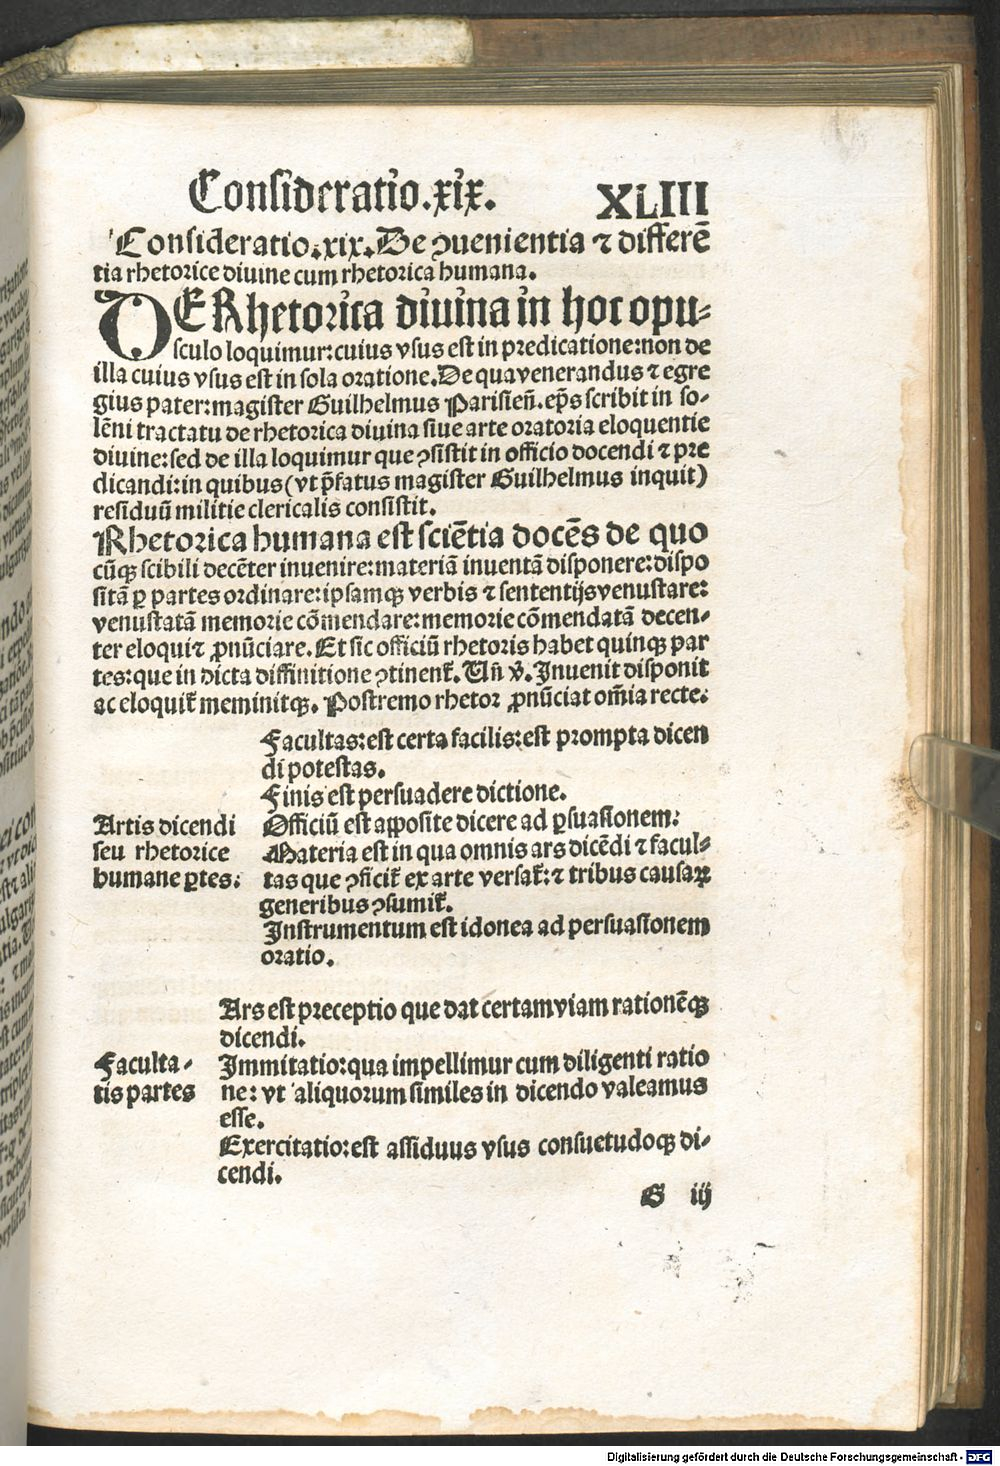 Consideratio.xix. XLIII
Consideratio.xix.De ꝯuenientia ⁊ differē
tia rhetorice diuine cum rhetorica humana.
DE Rhetorica diuina in hoc opu-
sculo loquimur:cuius vsus est in predicatione:non de
illa cuius vsus est in sola oratione.De qua venerandus ⁊ egre
gius pater:magister Guilhelmus Parisieñ.ep̄s scribit in so-
lēni tractatu de rhetorica diuina siue arte oratoria eloquentie
diuine:sed de illa loquimur que ꝯsistit in officio docendi ⁊ pre
dicandi:in quibus (vt p̄fatus magister Guilhelmus inquit)
residuū militie clericalis consistit.
Rhetorica humana est sciētia docēs de quo
cūqꝫ scibili decēter inuenire:materiā inuentā disponere:dispo
sitā ꝑ partes ordinare:ipsamqꝫ verbis ⁊ sententijs venustare:
venustatā memorie cōmendare:memorie cōmendatā decen-
ter eloqui⁊ ꝓnūciare.Et sic officiū rhetoris habet quinqꝫ par
tes:que in dicta diffinitione ꝯtinent᷑.Vñ v̓.Inuenit disponit
ac eloquit᷑ meminitqꝫ.Postremo rhetor ꝓnūciat om̄ia recte.
Facultas:est certa facilis:est prompta dicen
di potestas.
Finis est persuadere dictione.
Artis dicendi
seu rhetorice
humane ꝑtes:
Officiū est apposite dicere ad ꝑsuasionem:
Materia est in qua omnis ars dicēdi ⁊ facul-
tas que ꝯficit᷑ ex arte versat᷑:⁊ tribus causaꝝ
generibus ꝯsumit᷑.
Instrumentum est idonea ad persuasionem
oratio.
Ars est preceptio que dat certam viam rationēqꝫ
dicendi.
Faculta-
tis partes
Immitatio:qua impellimur cum diligenti ratio
ne: vt aliquorum similes in dicendo valeamus
esse.
Exercitatio:est assiduus vsus consuetudoqꝫ di-
cendi.
G iij
Digitalisierung gefördert durch die Deutsche Forschungsgemeinschaft - DFG